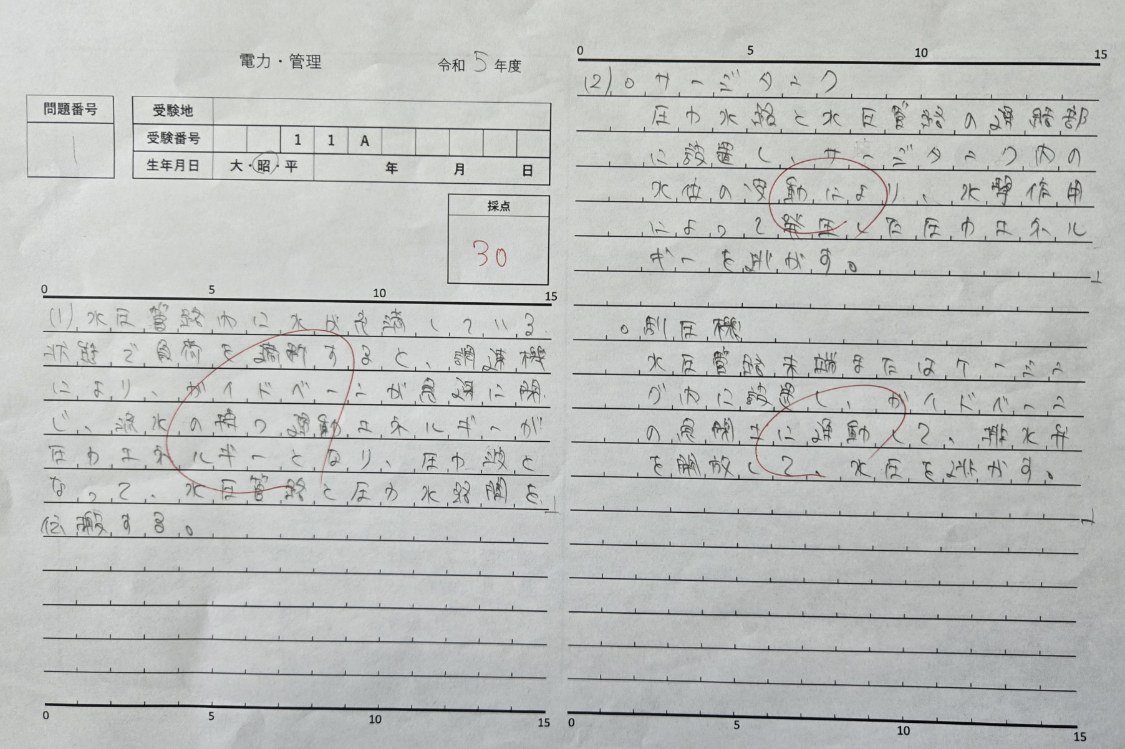 電力・管理
令和 5 年度
問題番号
1
受験地
受験番号 1 1 A
生年月日 大・昭・平 年 月 日
採点
30
0 5 10 15
(1) 水圧管路内に水が充満している
状態で負荷を遮断すると、調速機
により、ガイドベーンが急速に閉
じ、流水の持つ運動エネルギーが
圧力エネルギーとなり、圧力波と
なって、水圧管路と圧力水路間を
伝搬する。
0 5 10 15
0 5 10 15
(2) ○サージタンク
圧力水路と水圧管路の連絡部
に設置し、サージタンク内の
水位の変動により、水撃作用
によって発圧した圧力エネル
ギーを逃がす。
○制圧機
水圧管路末端またはケーシン
グ内に設置し、ガイドベーン
の急閉 に連動して、排水弁
を開放して、水圧を逃がす。
0 5 10 15